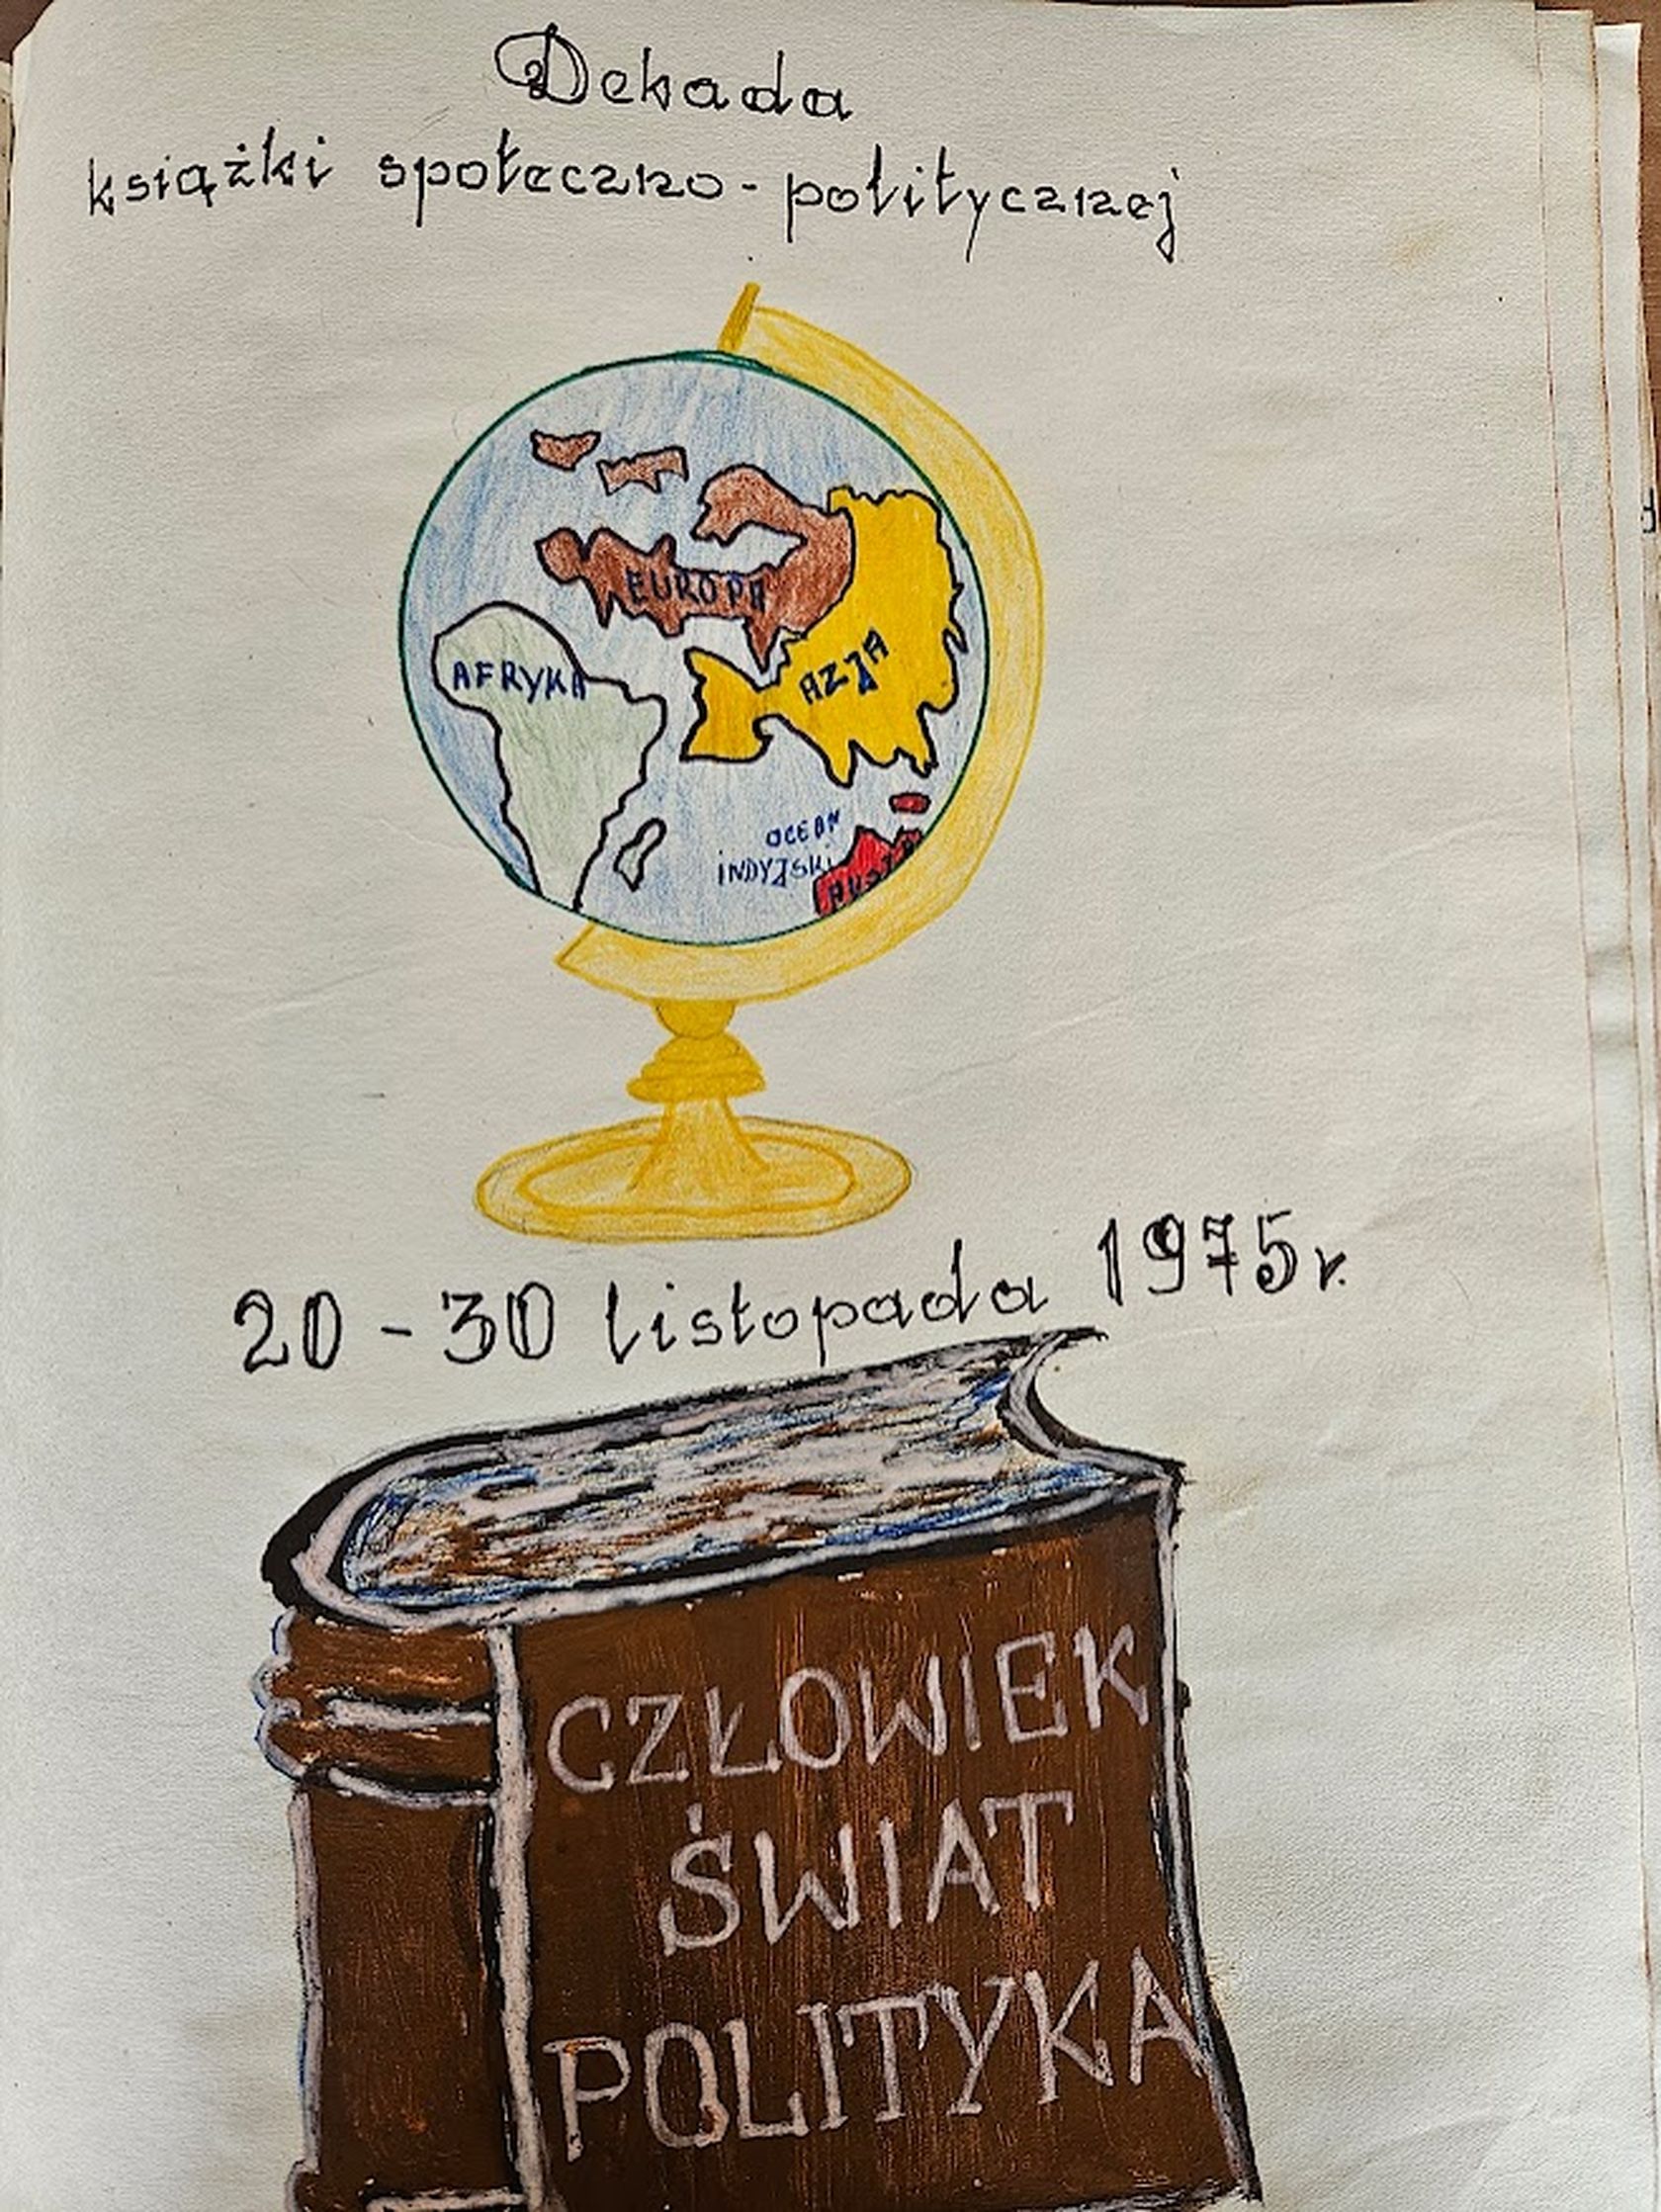 Dekada
książki społeczno-politycznej
EUROPA
AFRYKA
AZJA
OCEAN
INDYJSKI
AUST
20-30 listopada 1975r.
CZŁOWIEK
ŚWIAT
POLITYKA